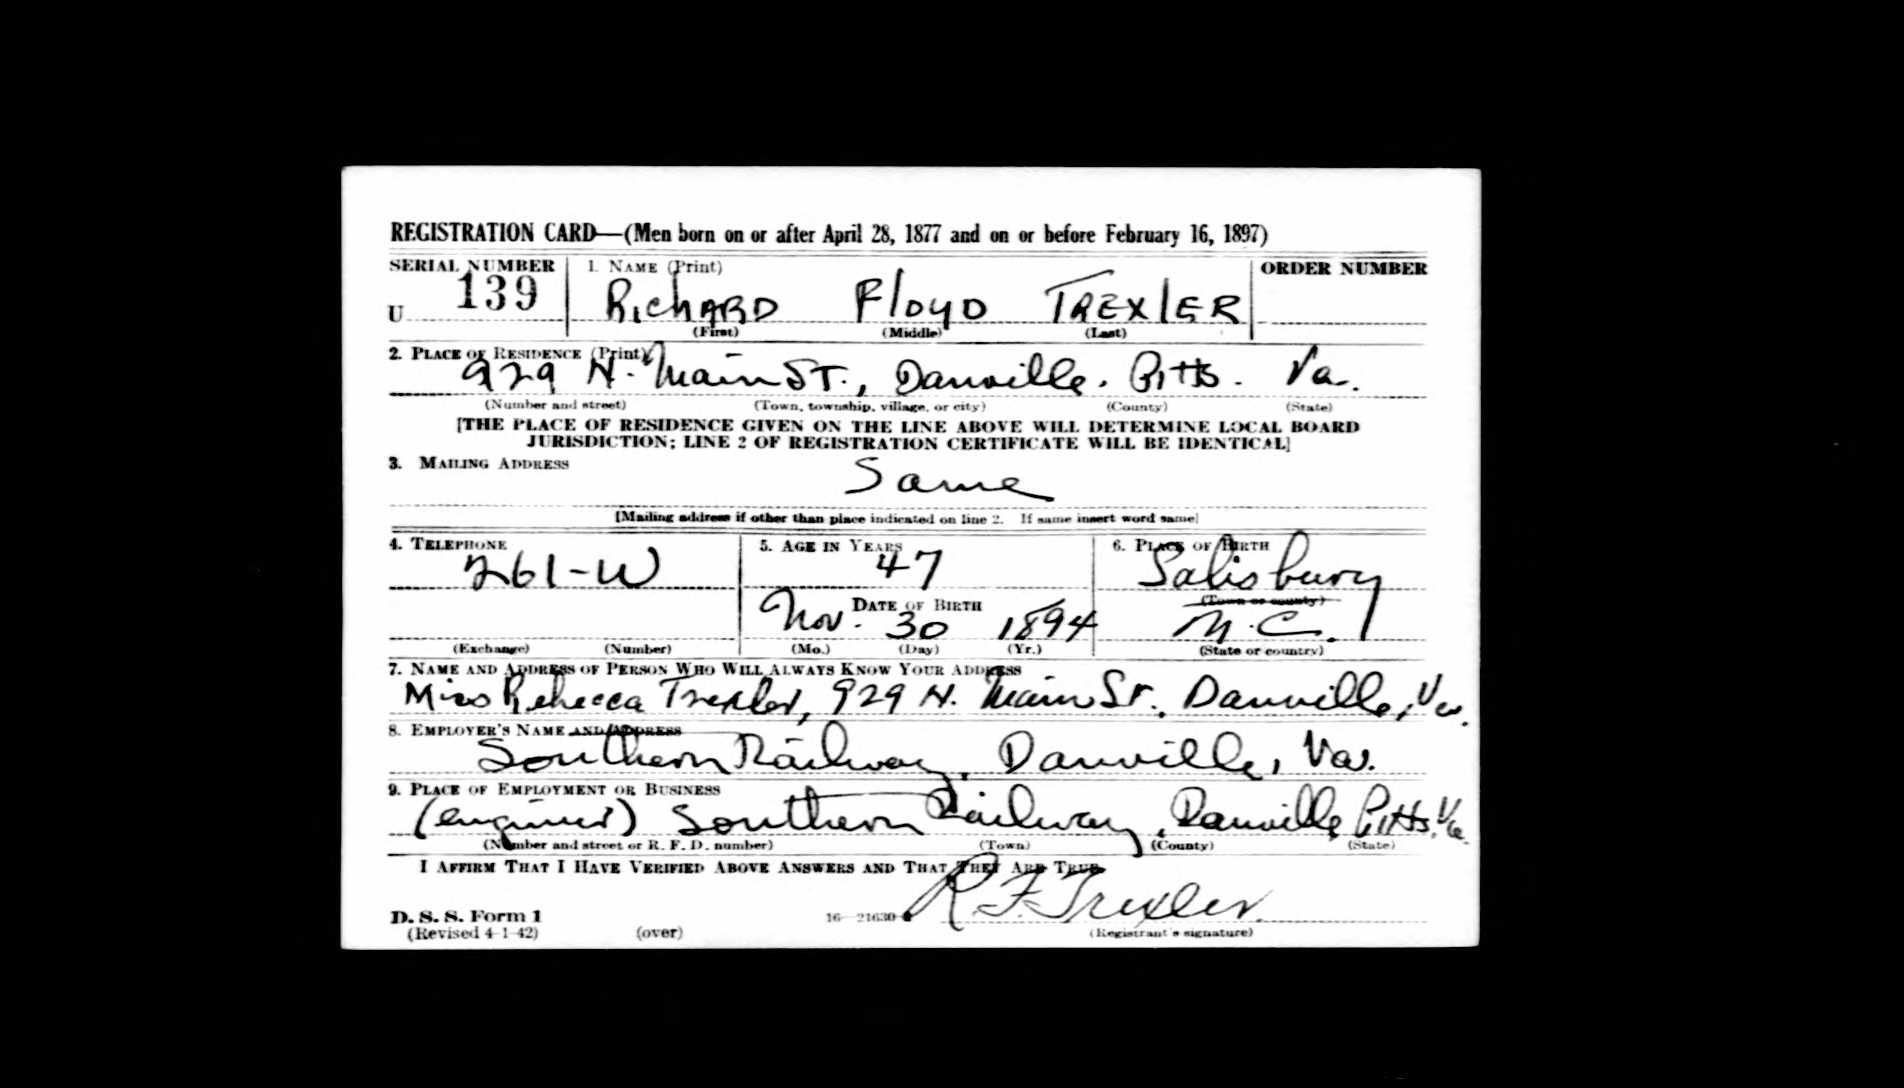 REGISTRATION CARD—(Men born on or after April 28, 1877 and on or before February 16, 1897)
SERIAL NUMBER 1. NAME (Print) ORDER NUMBER
U 139 RICHARD FLOYD TREXLER
(First) (Middle) (Last)
2. PLACE OF RESIDENCE (Print)
929 N. Main ST., Danville. Pitts. Va.
(Number and street) (Town, township, village, or city) (County) (State)
[THE PLACE OF RESIDENCE GIVEN ON THE LINE ABOVE WILL DETERMINE LOCAL BOARD
JURISDICTION; LINE 2 OF REGISTRATION CERTIFICATE WILL BE IDENTICAL]
3. MAILING ADDRESS
Same
[Mailing address if other than place indicated on line 2. If same insert word same]
4. TELEPHONE 5. AGE IN YEARS 6. PLACE OF BIRTH
261-W 47 Salisbury
DATE OF BIRTH (Town or county)
Nov. 30 1894 N.C.
(Exchange) (Number) (Mo.) (Day) (Yr.) (State or country)
7. NAME AND ADDRESS OF PERSON WHO WILL ALWAYS KNOW YOUR ADDRESS
Miss Rebecca Trexler, 929 N. Main St., Danville, Va.
8. EMPLOYER'S NAME AND ADDRESS
Southern Railway, Danville, Va.
9. PLACE OF EMPLOYMENT OR BUSINESS
(engineer) Southern Railway, Danville Pitts. Va.
(Number and street or R. F. D. number) (Town) (County) (State)
I AFFIRM THAT I HAVE VERIFIED ABOVE ANSWERS AND THAT THEY ARE TRUE.
R. F. Trexler
D. S. S. Form 1 16—21630
(Revised 4-1-42) (over) (Registrant's signature)